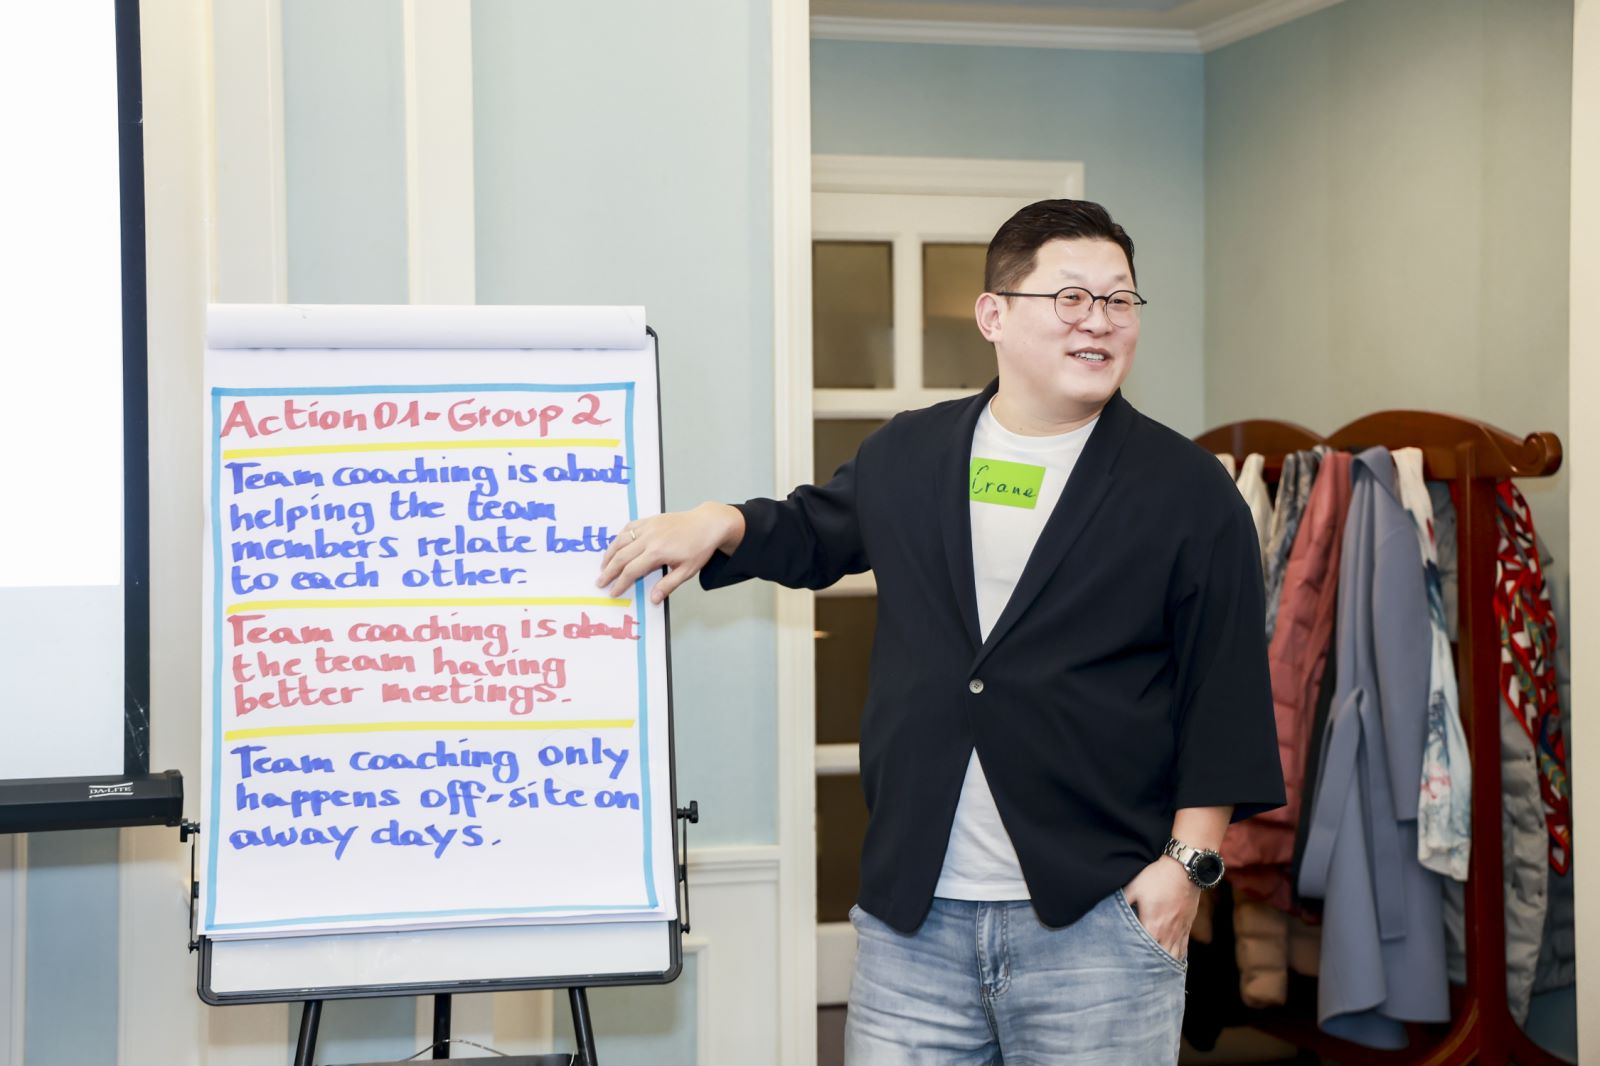 Action 01- Group 2
Team coaching is about
helping the team
members relate bette
to each other.
Team coaching is about
the team having
better meetings.
Team coaching only
happens off-site on
away days.
Crane
DA-LITE